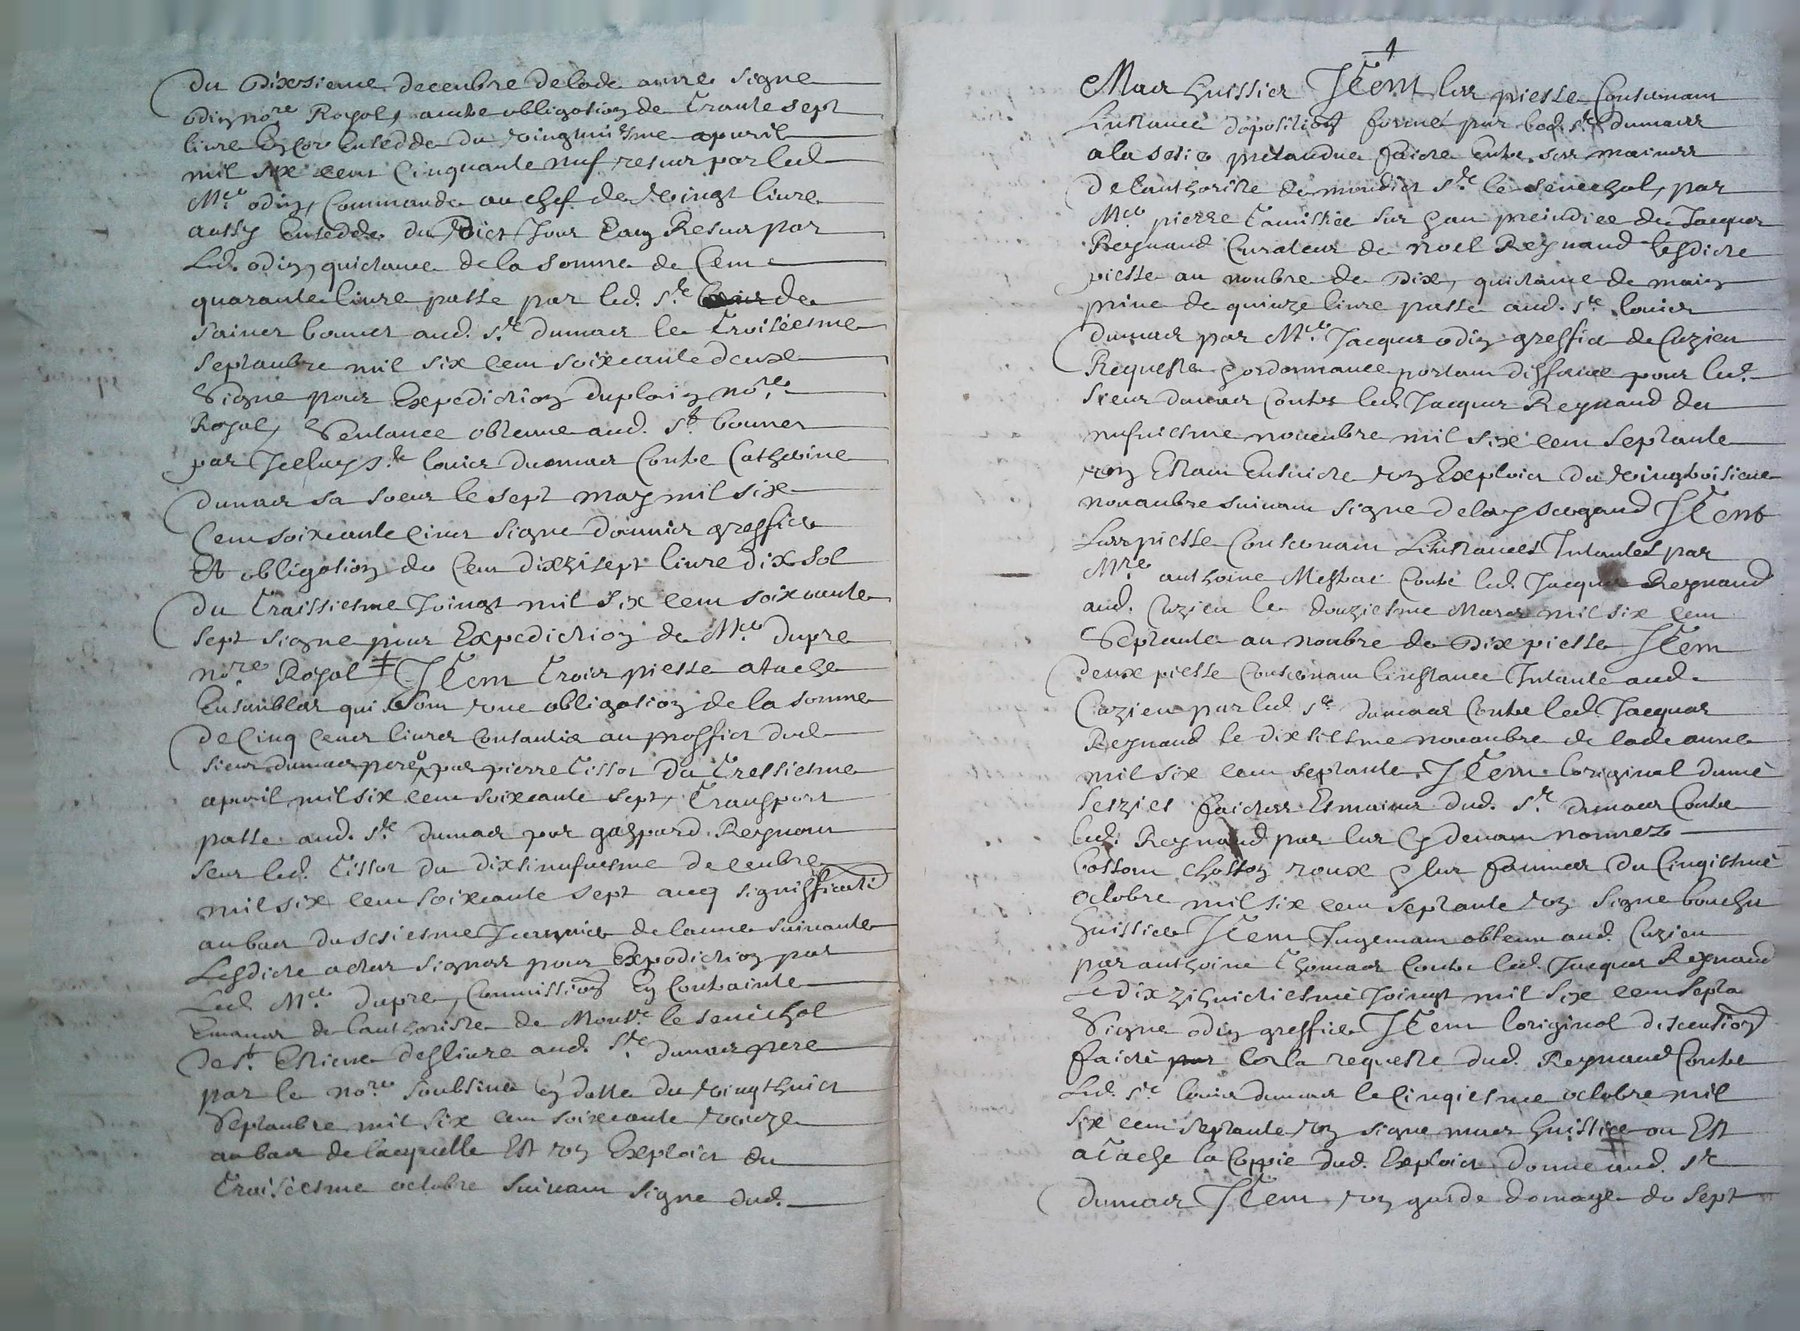 du dixsieme decenbre de lade annee signe
odin nore Royal, autre obligation de trante sept
livre en cor cusedde du vingtmiesme apvril
mil six cent cinquante nuf resur par led
Me odin, Commande au chef de vingt livre
aussy cusedde du dict Jour Resu par
Led. odin, quictance de la somme de Cent
quarante livre passe par led. Sr de
bonnet aud. Sr dumas le troisiesme
septanbre mil six cent soixcante deux
Signe pour Expedition duplain nore
Royal, Sentance obtenue aud. St bonnet
par Icelluy Sr louis dumas Contre Catherine
dumas sa soeur le sept may mil six
Cent soixcante cinq signe greffier
Et obligation de Cent dixzisept livre dix sol
du traissiesme Joingt mil six cent soixcante
sept signe pour Expedition de Me dupre
nore Royal Item trois piesse atache
Ensanbles qui som une obligation de la somme
de Cinq Cents livres Consantie au proffict dud
sieur dumas pere par pierre tissot du tressiesme
apvril mil six cent soixcante sept, transport
passe aud. Sr dumas par gaspard Reynaut
seur led. tissot du dixsinufviesme decenbre
mil six cent soixcante sept avec signiffication
au bas du sesiesme Janvier de lanne suivante
Lesdicte actes signes pour Expedition par
Led Me dupre, Commission En Contrainte
Emanes de lauthoriste de Monsr le senechal
de St Estiene deslivre aud. Sr dumas pere
par le nore soubsine en datte du vingthuict
Septanbre mil six cent soixcante vonze
au bas de lacquelle Est von Exploict du
troisiesme octobre suivant signe dud.
Mas huissier Item les piesse Conservant
Linstance doposition forme par led. Sr dumas
a la sesie pretandue faicte Entre ses maines
de lauthoriste de mondict Sr le senechal, par
Me pierre tamisier sur Jan preiudice de Jacques
Reynaud Curateur de noel Reynaud lesdicte
piesse au nonbre de dix, quictance de main
prive de quinze livre passe aud. Sr louis
dumas par Me Jacques odin greffier de Cuzieu
Requeste hordonnance portant deffance pour led.
Sieur dumas Contre led. Jacques Reynaud du
nufviesme novenbre mil six cent septante
von Estant Ensuicte von Exploict du vingtroisieme
novanbre suivant signe Item
Les piesse Conservant Linstance Intantes par
Mre anthoine Mestrat Contre led. Jacques Reynaud
aud. Cuzieu le douziesme Mars mil six cent
Septante au nonbre de dix piesse Item
deux piesse Conservant linstance Intante aud.
Cuzieu par led. Sr dumas Contre led. Jacques
Reynaud le dixsiesme novanbre de lade anne
mil six cent septante. Item loriginal dune
seszies faictes Es mains dud. Sr dumas Contre
led. Reynaud par les Cy devant nonmez
roux & les du Cinqiesme
octobre mil six cent septante von signe
huissier Item Jugemant obtenu aud. Cuzieu
par anthoine thomas Contre led. Jacques Reynaud
Le dixzihuictiesme Joingt mil six cent septa
Signe odin greffier Item loriginal
faicte a la requeste dud. Reynaud Contre
Led. Sr louis dumas le Cinqiesme octobre mil
six cent septante von signe mas huissier ou Est
atache la Coppie dud. Exploict donne aud. Sr
dumas Item von garde domage de sept